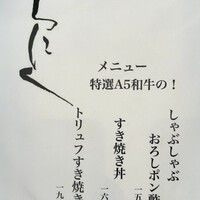 メニュー
特選A5和牛の！
しゃぶしゃぶ
おろしポン酢
一五
すき焼き丼
一六
トリュフすき焼き
一九